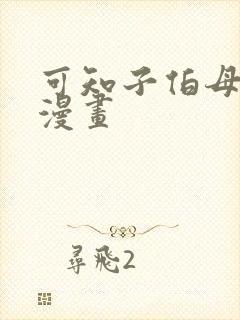 可知子伯母
漫畫
尋飛2